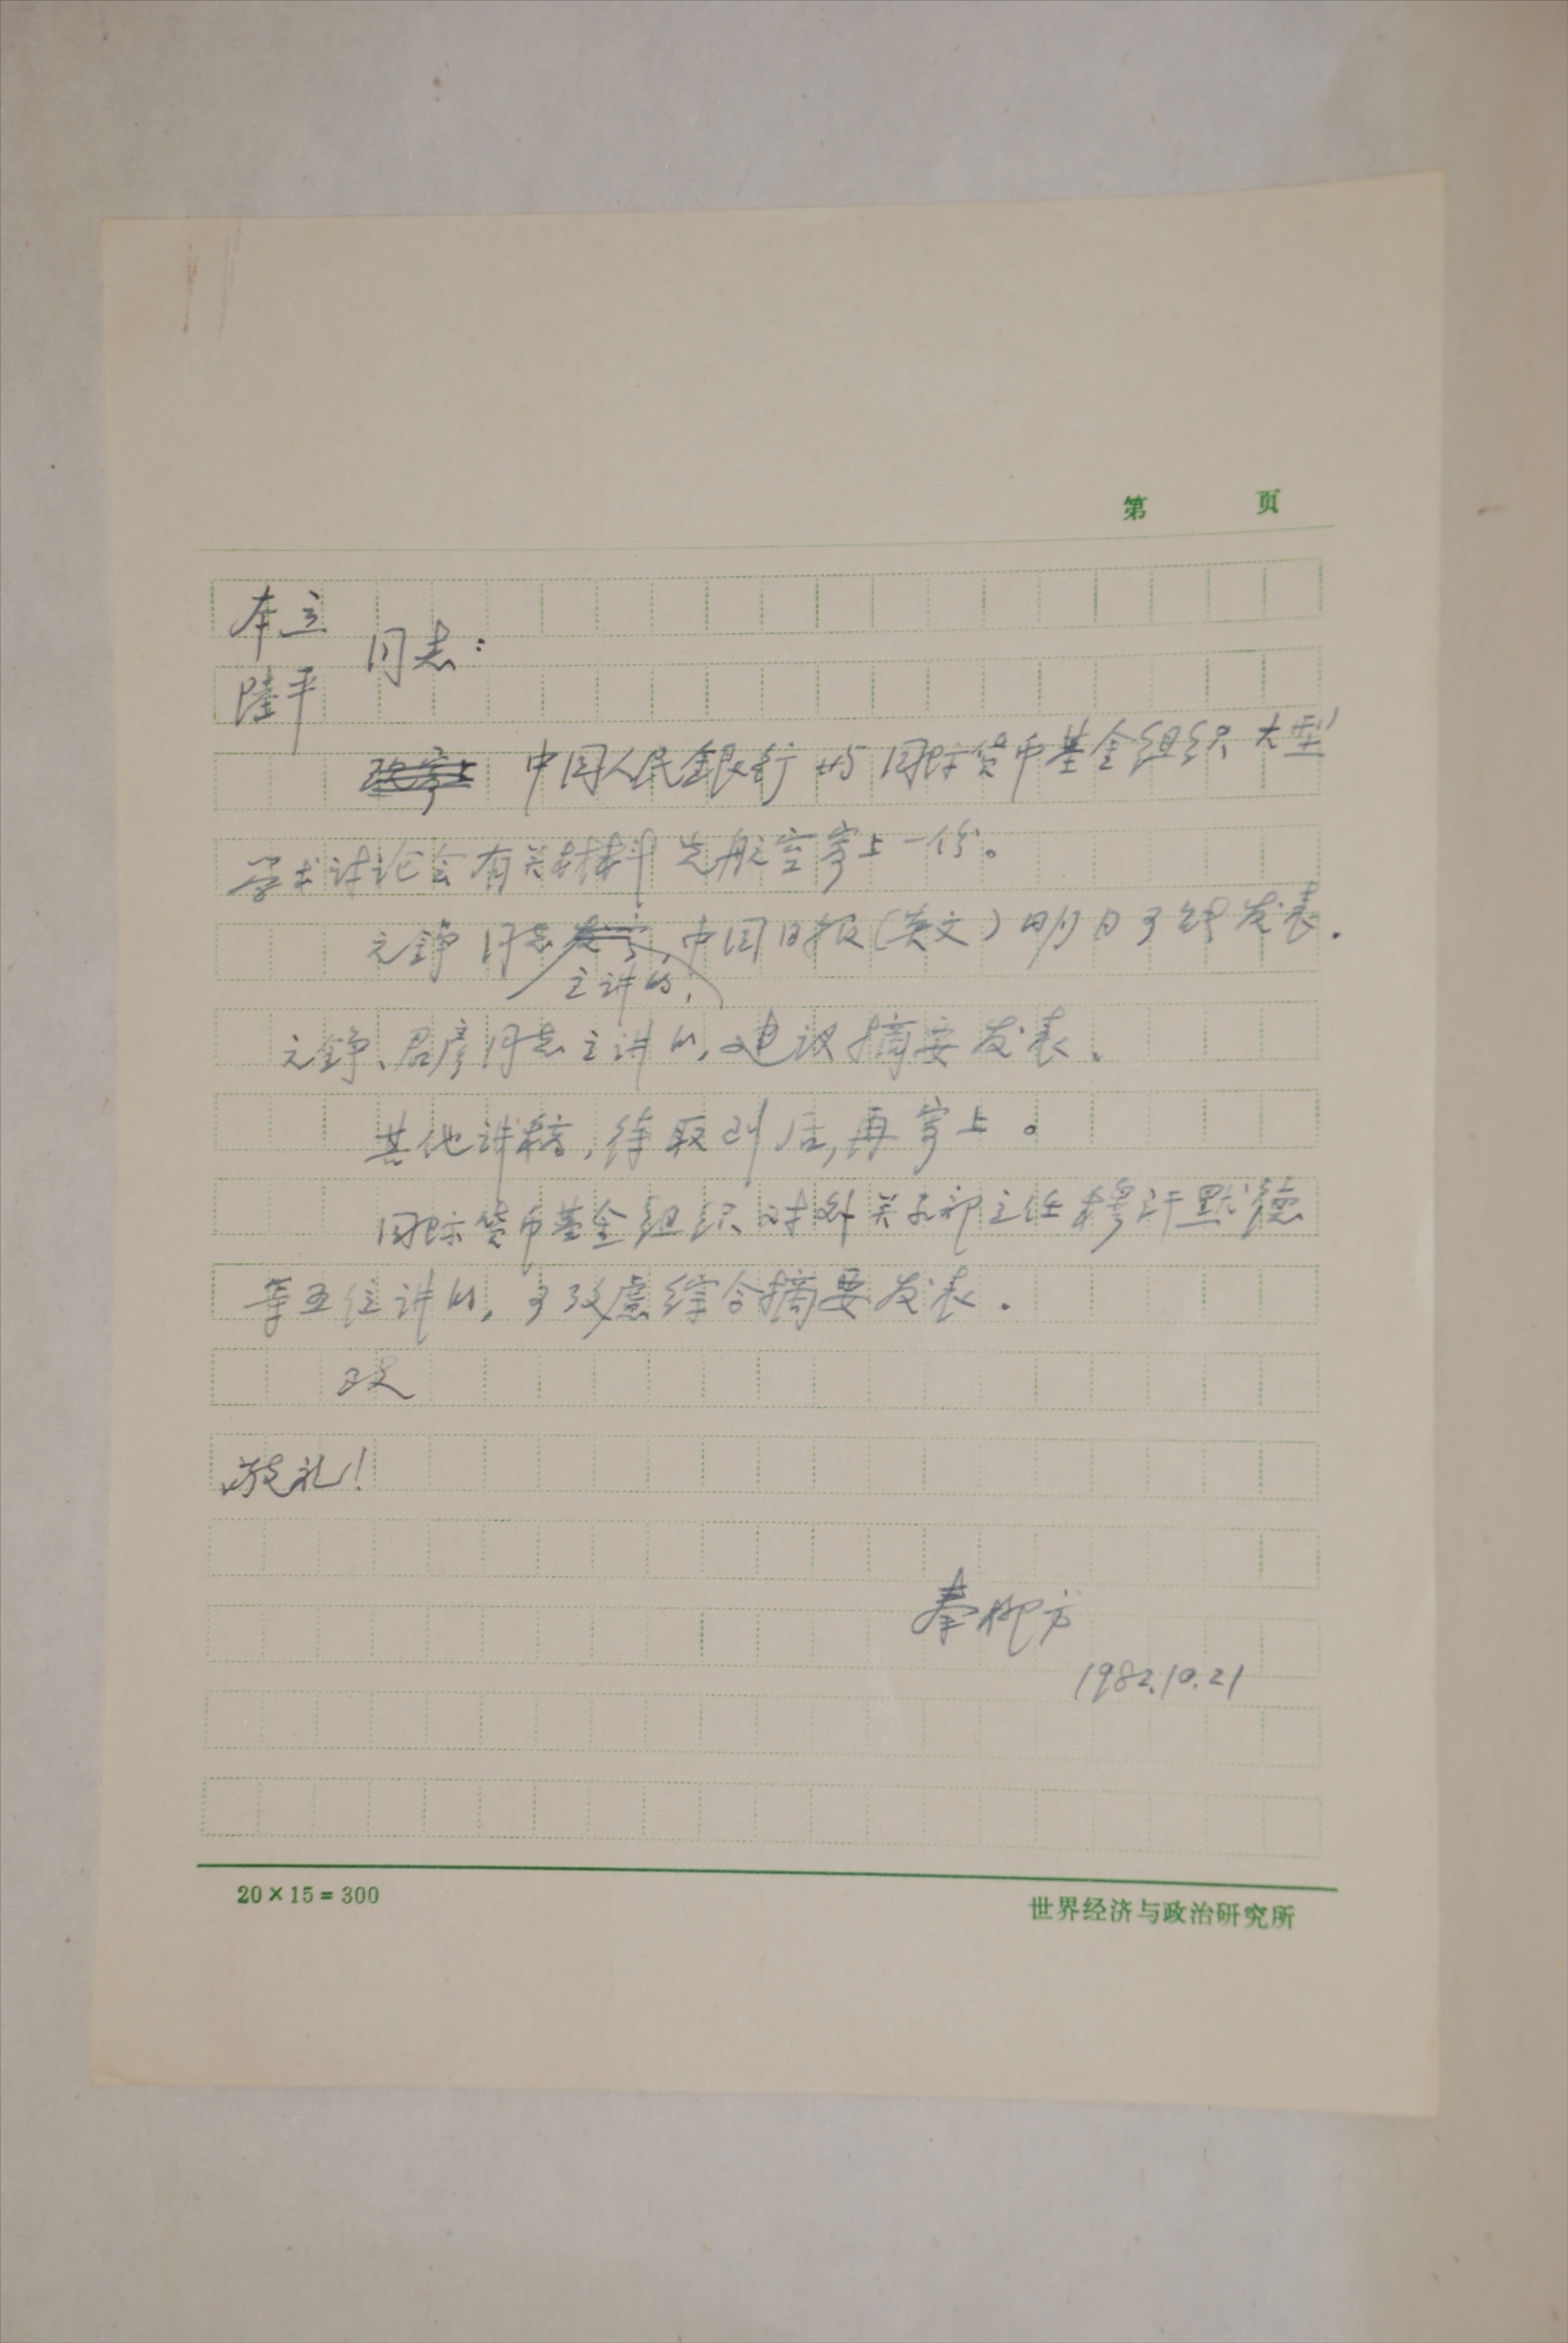 第 页
本立
同志：
陆平
中国人民银行与国际货币基金组织大型
学术讨论会有关材料先航空寄上一份。
元铮同志 中国日报（英文）明日可能发表.
主讲的，
元铮、君彦同志主讲的，建议摘要发表。
其他讲稿，待取到后，再寄上。
国际货币基金组织对外关系部主任穆罕默德
等五位讲的，可孜虑综合摘要发表.
致
敬礼！
秦柳方
1982.10.21
20×15=300
世界经济与政治研究所